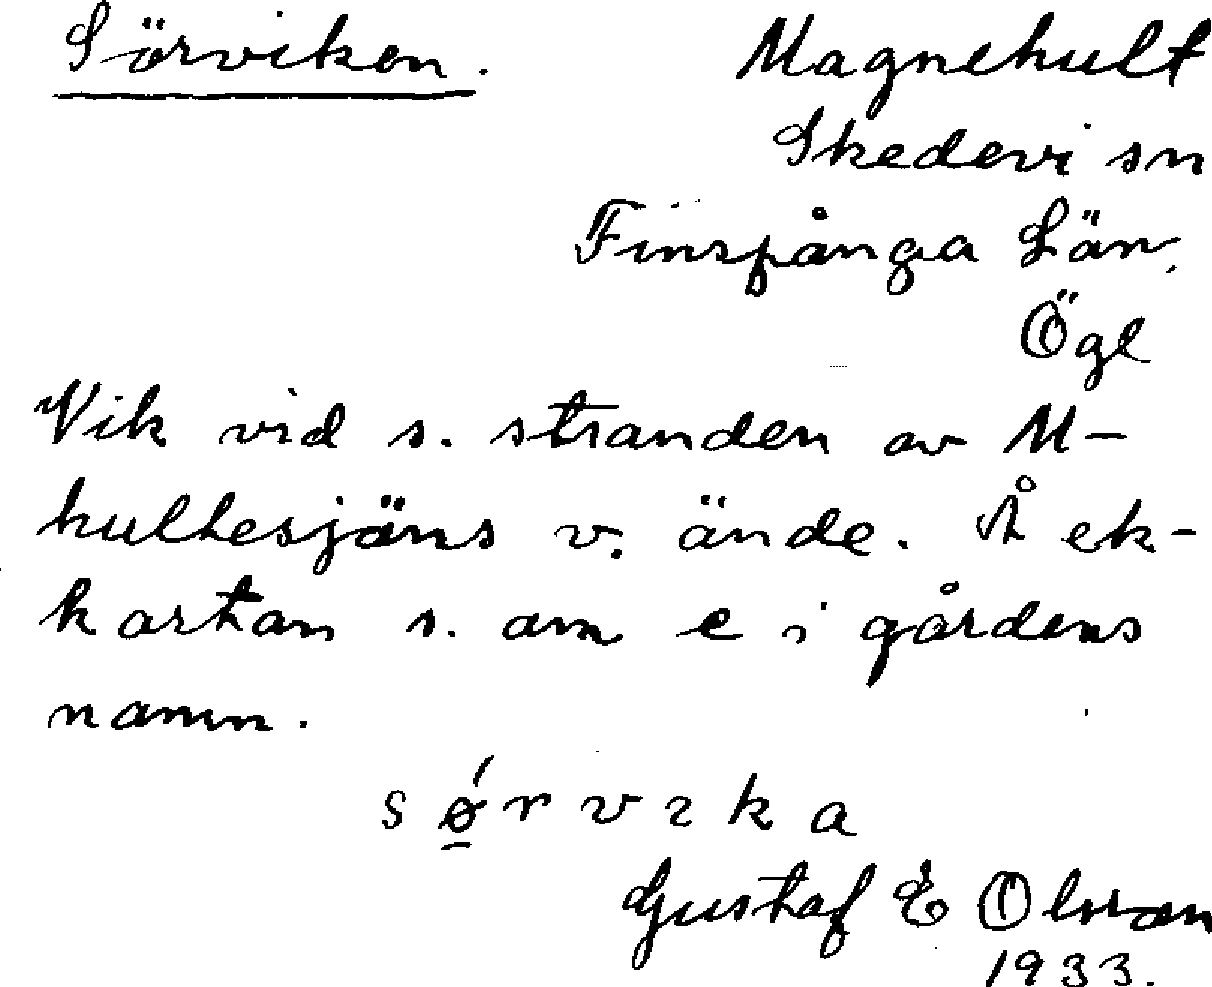 Sörviken. Magnehult
Skedevi sn
Finspånga Län,
Ögl
Vik vid s. stranden av M-
hultesjöns v. ände. Å ek-
kartan s. om e i gårdens
namn.
sǿrvıka
Gustaf E Olsson
1933.